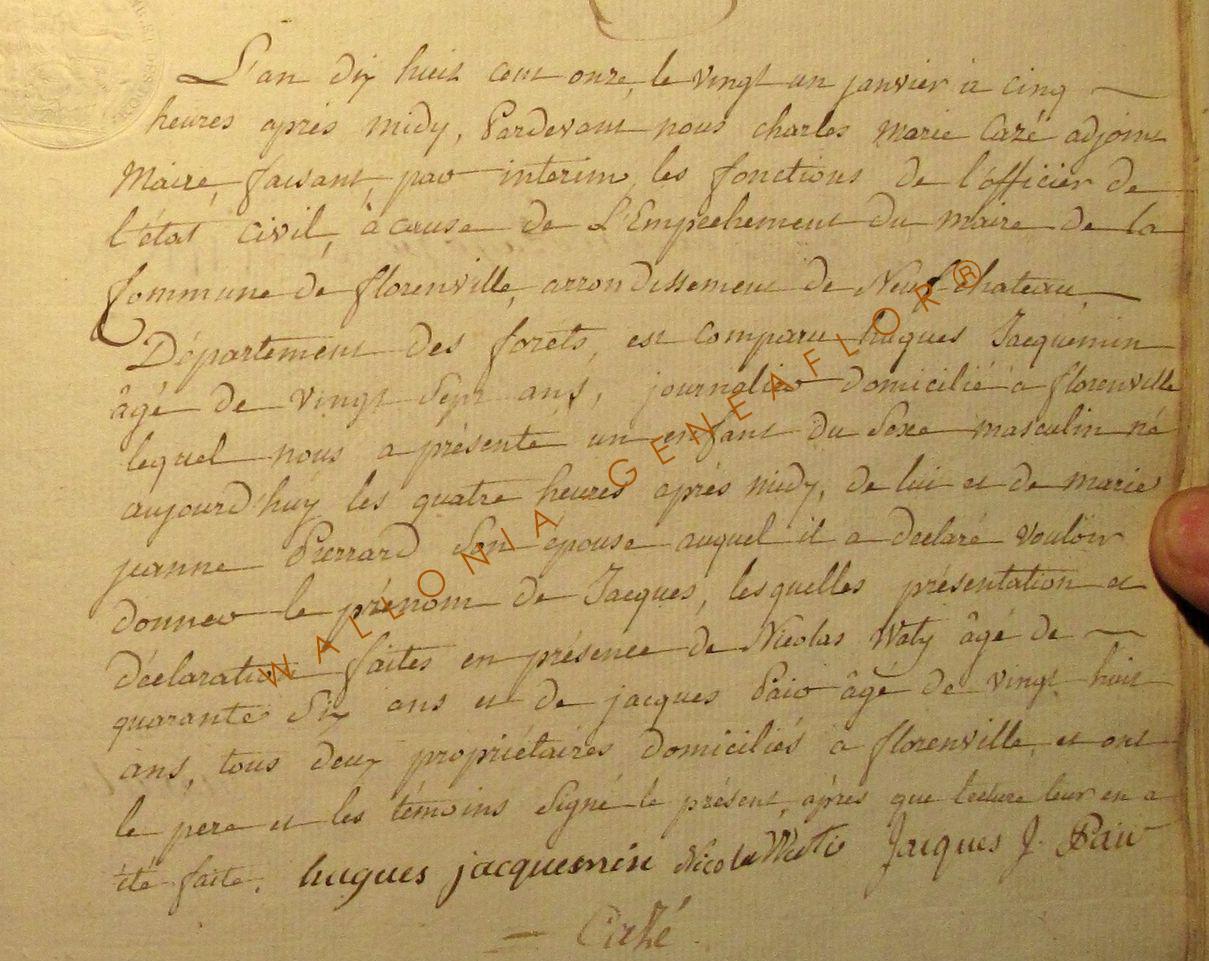 L'an dix huit cent onze, le vingt un janvier à cinq
heures après midy, Pardevant nous charles marie Cazé adjoint
Maire, faisant, par interim, les fonctions de l'officier de
l'état civil, à cause de L'Empechement du maire de la
Commune de florenville, arrondissement de Neufchateau,
Département des forêts, est comparu hugues Jacquemin
âgé de vingt Sept ans, journalier domicilié à florenville
lequel nous a présenté un enfant du Sexe masculin né
aujourd'huy les quatre heures après midy, de lui et de marie
jeanne Pierrard Son epouse auquel il a declaré vouloir
donner le prénom de Jacques, lesquelles présentation et
déclaration faites en présence de Nicolas Waty âgé de
quarante Six ans et de jacques Paio âgé de vingt huit
ans, tous deux propriétaires domiciliés à florenville, et ont
le pere et les témoins Signé le présent, après que lecture leur en a
été faite. hugues jacquemin Nicola Jacques J.
WALLONIA GENEAFLOR®